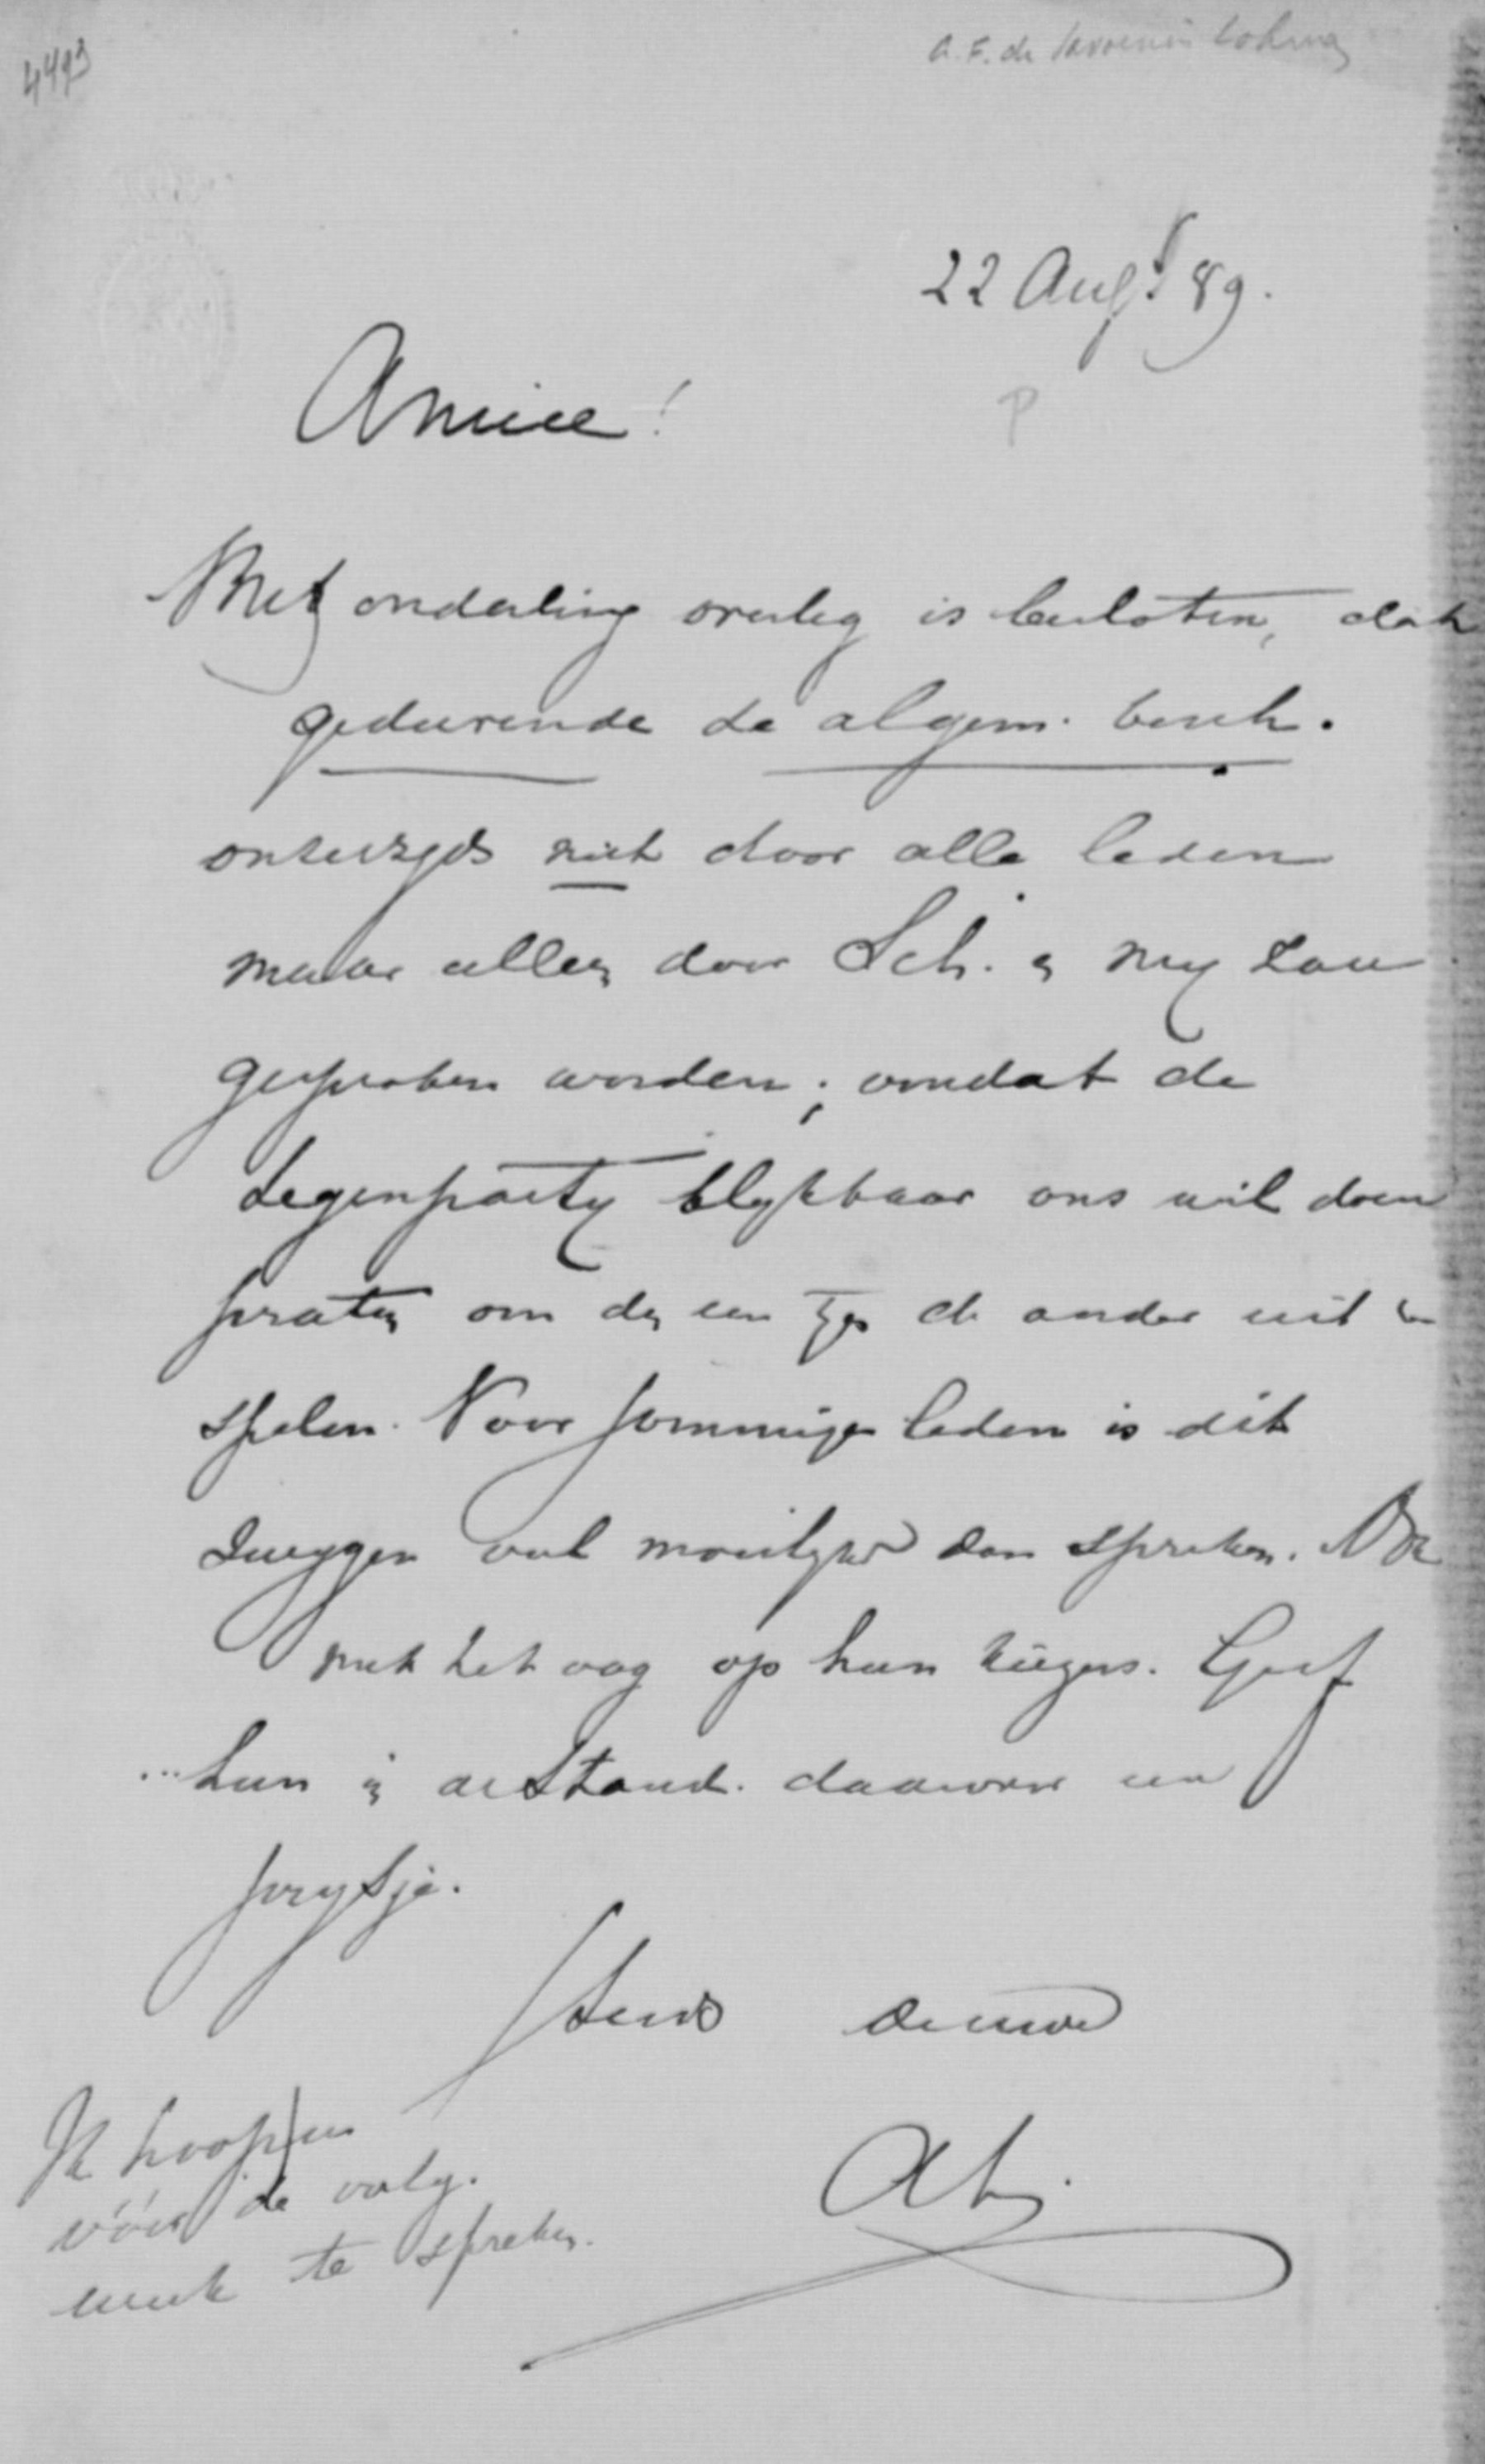 4493
A.F. de Savornin Lohman
22 Aug. 89.
Amice!
P
Met onderling overleg is besloten, dat
gedurende de algem. besch.
onzerzyds niet door alle leden
maar alleen door Sch. en my zou
gesproken worden; omdat de
tegenparty blykbaar ons wil doen
praten om den een tgn de ander uit te
spelen. Voor sommige leden is dit
zwygen veel moeilyker dan spreken. Ook
met het oog op hun kiezers. Geef
hun in de Stand. daarvoor een
prysje.
Steeds de uwe
AL.
Ik hoop
vóór de volg.
week te spreken.